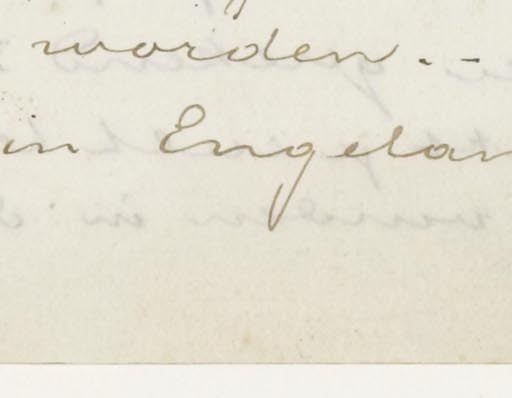 worden. --
in Engelan